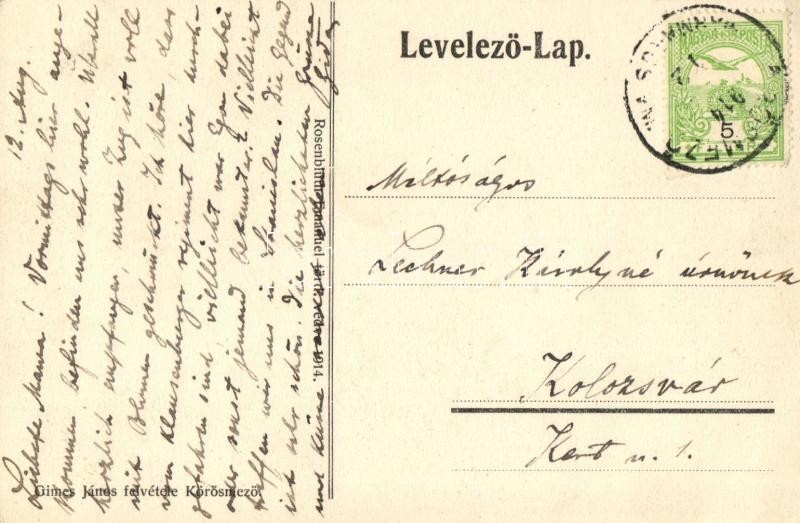 Levelező-Lap.
5
914
Méltóságos
Lechner Károlyné úrnőnek
Kolozsvár
Kert u. 1.
12. Aug.
Liebste Mama! Vormittags hier ange-
kommen befinden uns sehr wohl. Überall
herzlich empfangen, unser Zug ist voll
mit Blumen geschmückt. Ich höre, dass
vom Klausenburger regiment hier durch-
gefahren sind, vielleicht war Egon dabei
oder sonst jemand bekannter. Vielleicht
treffen wir uns in Stanislau. Die Gegend
ist sehr schön. Die herzlichsten Grüsse
und Küsse
Rosenblum Emánuel 1914.
Gimes János felvétele Kőrösmező.